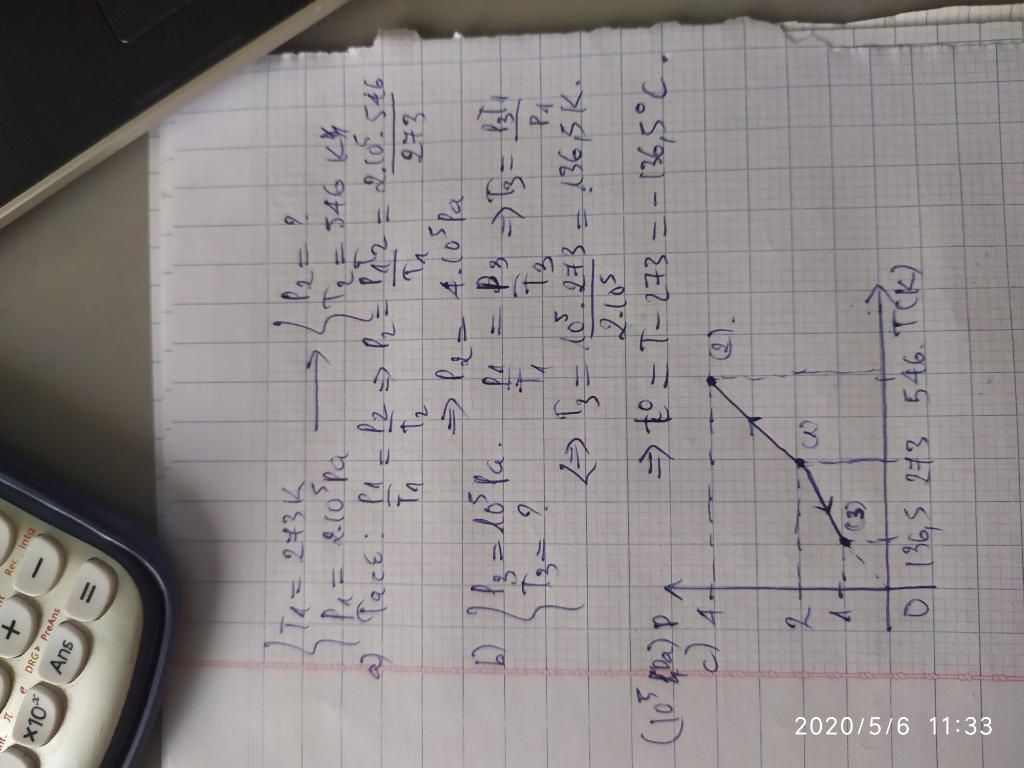 { T1 = 273K
P1 = 2.10^5 Pa
⟶ { P2 = ?
T2 = 546 K
a) Ta có: P1/T1 = P2/T2 ⇒ P2 = P1T2/T1 = 2.10^5.546/273
⇒ P2 = 4.10^5 Pa
b) { P3 = 10^5 Pa.
T3 = ?
P1/T1 = P3/T3 ⇒ T3 = P3T1/P1
⇔ T3 = 10^5.273/2.10^5 = 136,5K.
⇒ t° = T - 273 = -136,5°C.
c)
(10^5 Pa) P
4
(2).
2
(1)
1
(3)
0 136,5 273 546. T(K)
Rec Into
−
=
+
DRG▸ PreAns
Ans
π e
×10^x
2020/5/6 11:33